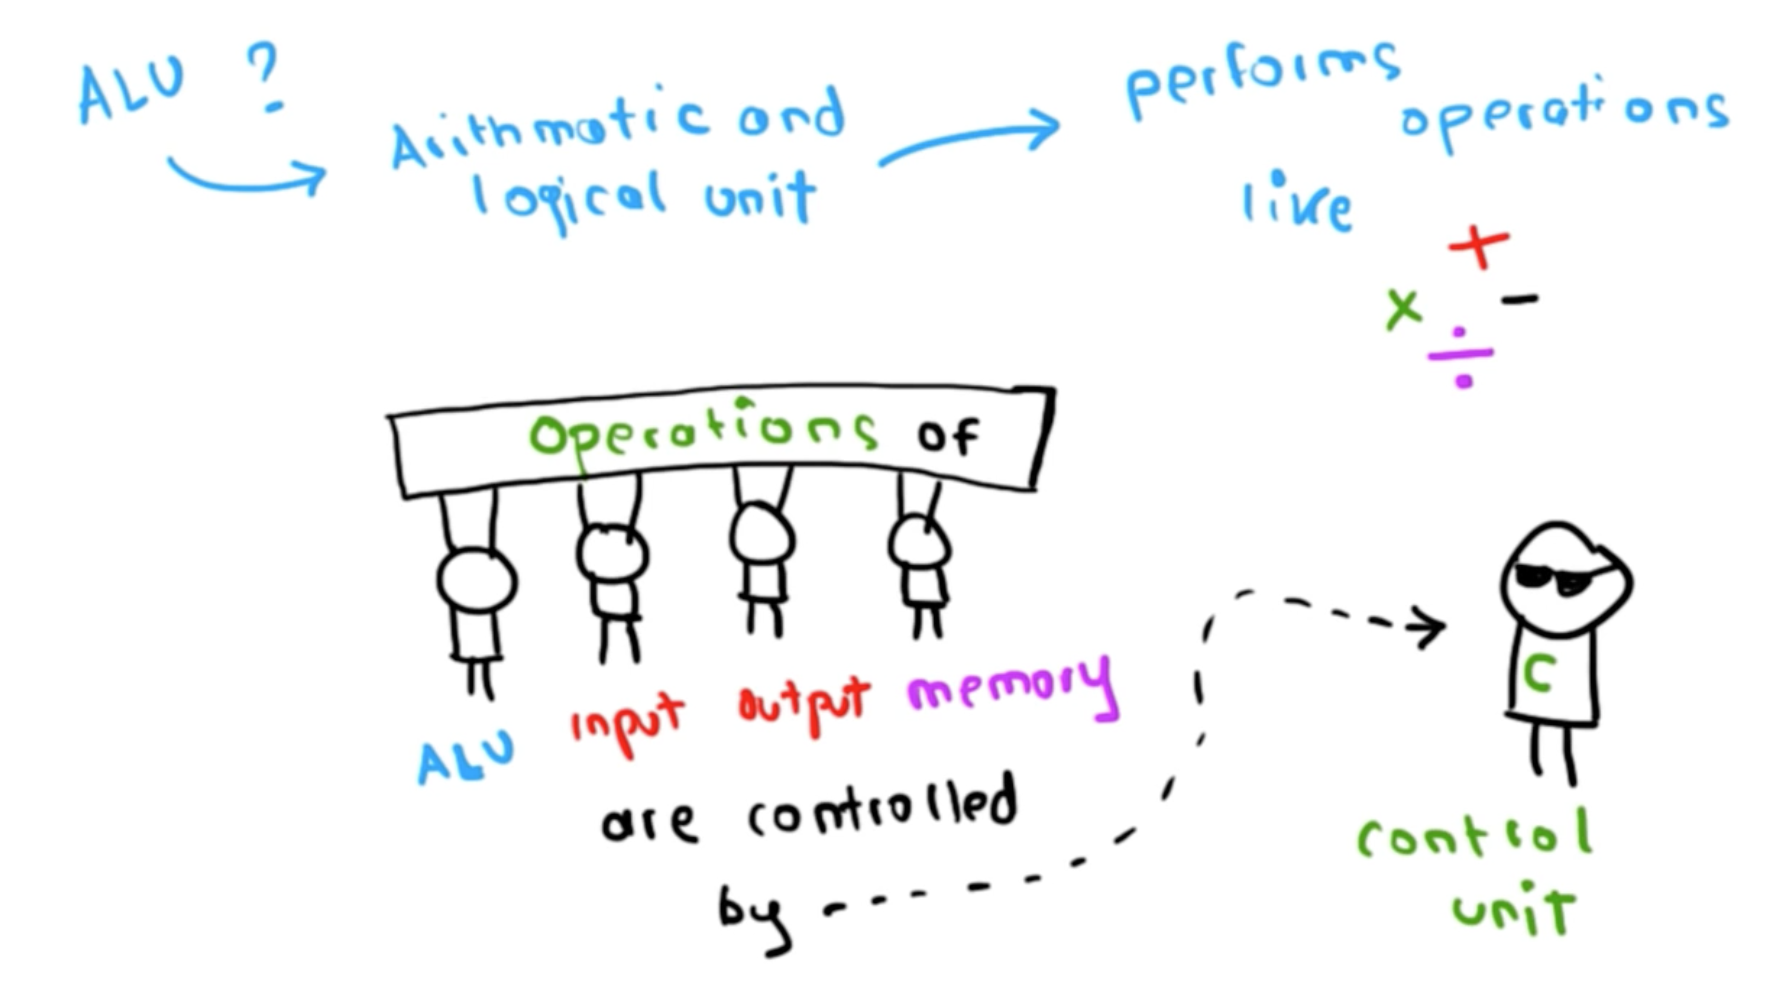 ALU ?
Arithmatic and
logical unit
performs
operations
like
+
× -
÷
Operations of
ALU input output memory
are controlled
by
C
control
unit